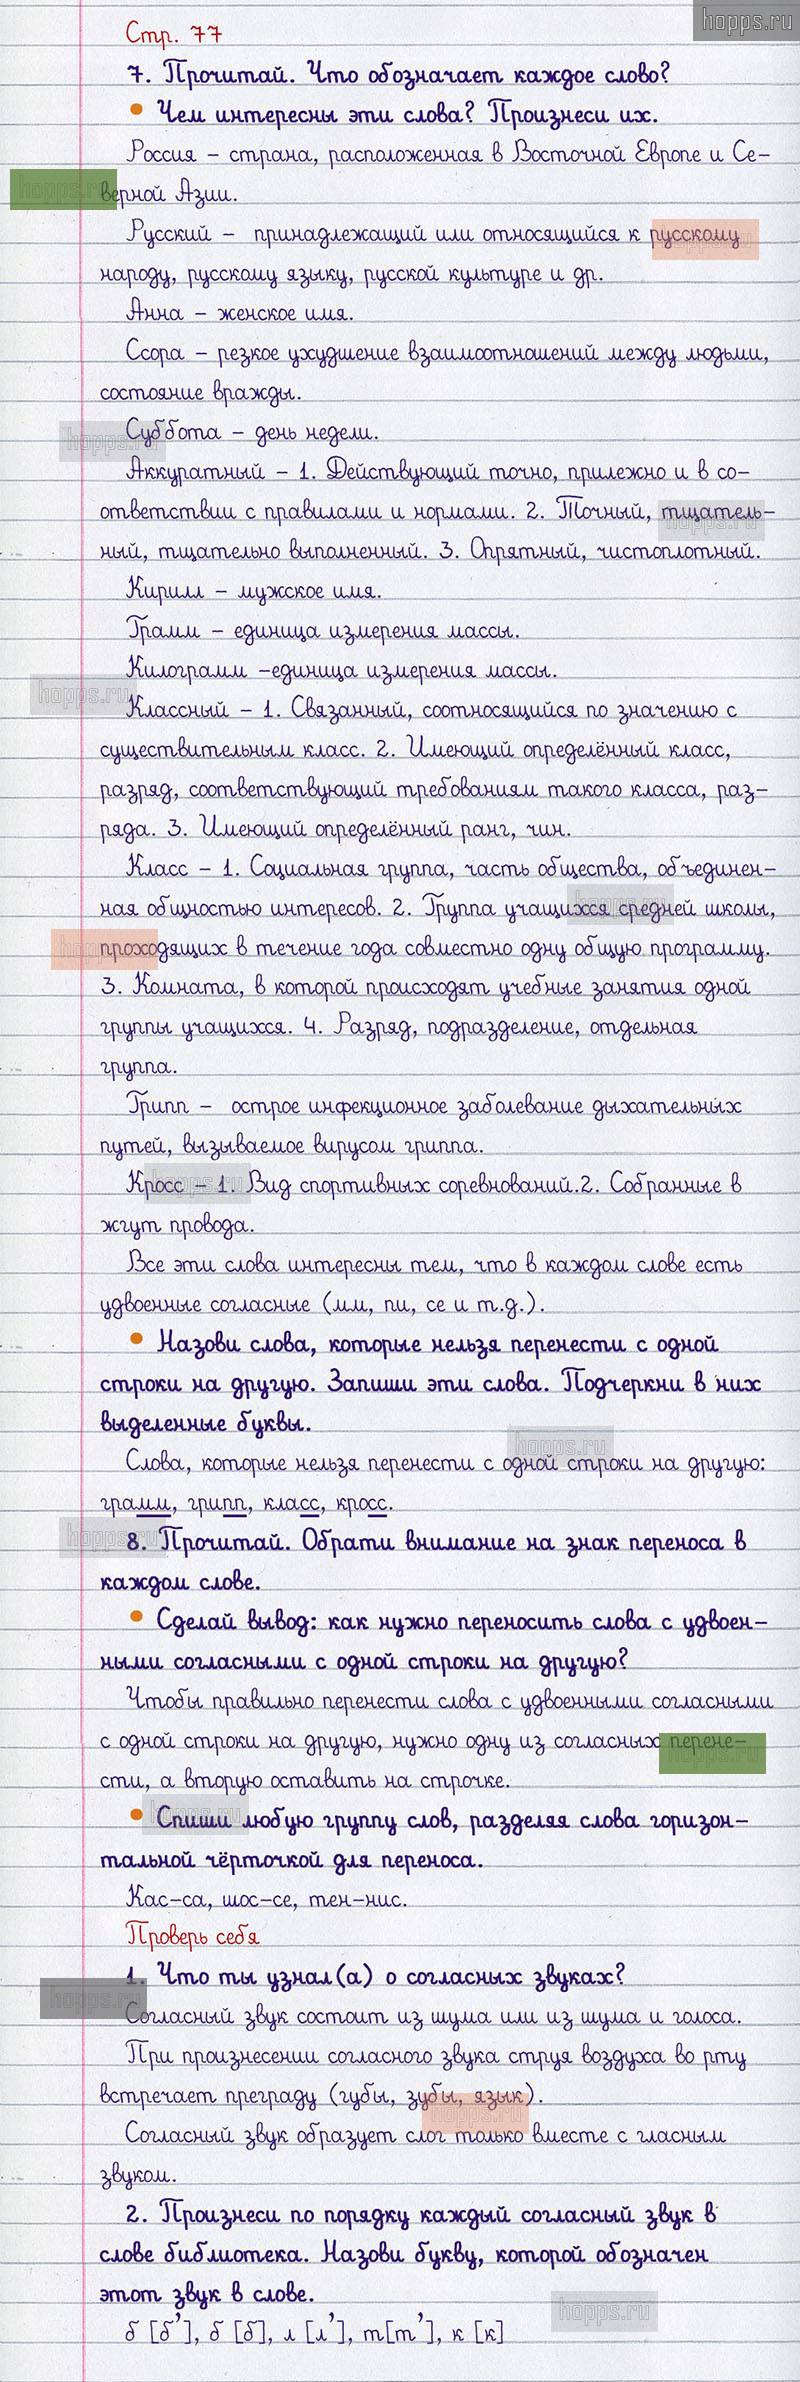 hopps.ru
Стр. 77
7. Прочитай. Что обозначает каждое слово?
• Чем интересны эти слова? Произнеси их.
Россия – страна, расположенная в Восточной Европе и Се-
верной Азии.
Русский – принадлежащий или относящийся к русскому
народу, русскому языку, русской культуре и др.
Анна – женское имя.
Ссора – резкое ухудшение взаимоотношений между людьми,
состояние вражды.
Суббота – день недели.
Аккуратный – 1. Действующий точно, прилежно и в со-
ответствии с правилами и нормами. 2. Точный, тщатель-
ный, тщательно выполненный. 3. Опрятный, чистоплотный.
Кирилл – мужское имя.
Грамм – единица измерения массы.
Килограмм –единица измерения массы.
Классный – 1. Связанный, соотносящийся по значению с
существительным класс. 2. Имеющий определённый класс,
разряд, соответствующий требованиям такого класса, раз-
ряда. 3. Имеющий определённый ранг, чин.
Класс – 1. Социальная группа, часть общества, объединен-
ная общностью интересов. 2. Группа учащихся средней школы,
проходящих в течение года совместно одну общую программу.
3. Комната, в которой происходят учебные занятия одной
группы учащихся. 4. Разряд, подразделение, отдельная
группа.
Грипп – острое инфекционное заболевание дыхательных
путей, вызываемое вирусом гриппа.
Кросс – 1. Вид спортивных соревнований.2. Собранные в
жгут провода.
Все эти слова интересны тем, что в каждом слове есть
удвоенные согласные (мм, пи, се и т.д.).
• Назови слова, которые нельзя перенести с одной
строки на другую. Запиши эти слова. Подчеркни в них
выделенные буквы.
Слова, которые нельзя перенести с одной строки на другую:
грамм, грипп, класс, кросс.
8. Прочитай. Обрати внимание на знак переноса в
каждом слове.
• Сделай вывод: как нужно переносить слова с удвоен-
ными согласными с одной строки на другую?
Чтобы правильно перенести слова с удвоенными согласными
с одной строки на другую, нужно одну из согласных перене-
сти, а вторую оставить на строчке.
• Спиши любую группу слов, разделяя слова горизон-
тальной чёрточкой для переноса.
Кас-са, шос-се, тен-нис.
Проверь себя
1. Что ты узнал(а) о согласных звуках?
Согласный звук состоит из шума или из шума и голоса.
При произнесении согласного звука струя воздуха во рту
встречает преграду (губы, зубы, язык).
Согласный звук образует слог только вместе с гласным
звуком.
2. Произнеси по порядку каждый согласный звук в
слове библиотека. Назови букву, которой обозначен
этот звук в слове.
б [б’], б [б], л [л’], т[т’], к [к]